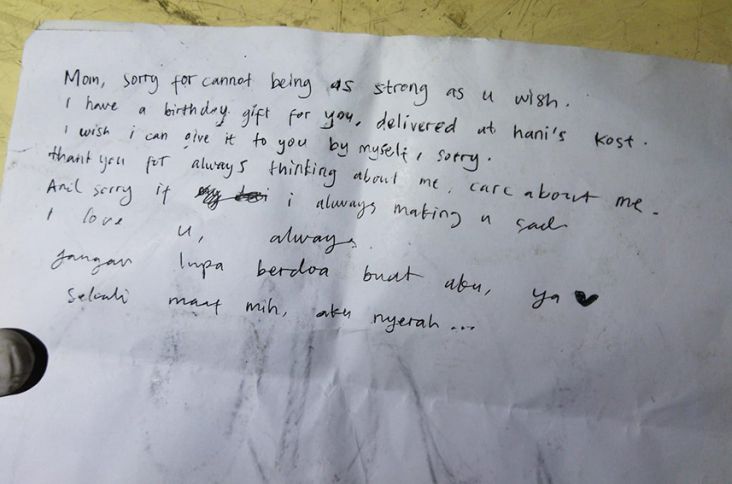 Mom, sorry for cannot being as strong as u wish.
I have a birthday gift for you, delivered at hani's kost.
I wish i can give it to you by myself, sorry.
thank you for always thinking about me, care about me.
And sorry if i always making u sad
I love u, always.
Jangan lupa berdoa buat aku, ya ♥
Sekali maaf mih, aku nyerah...